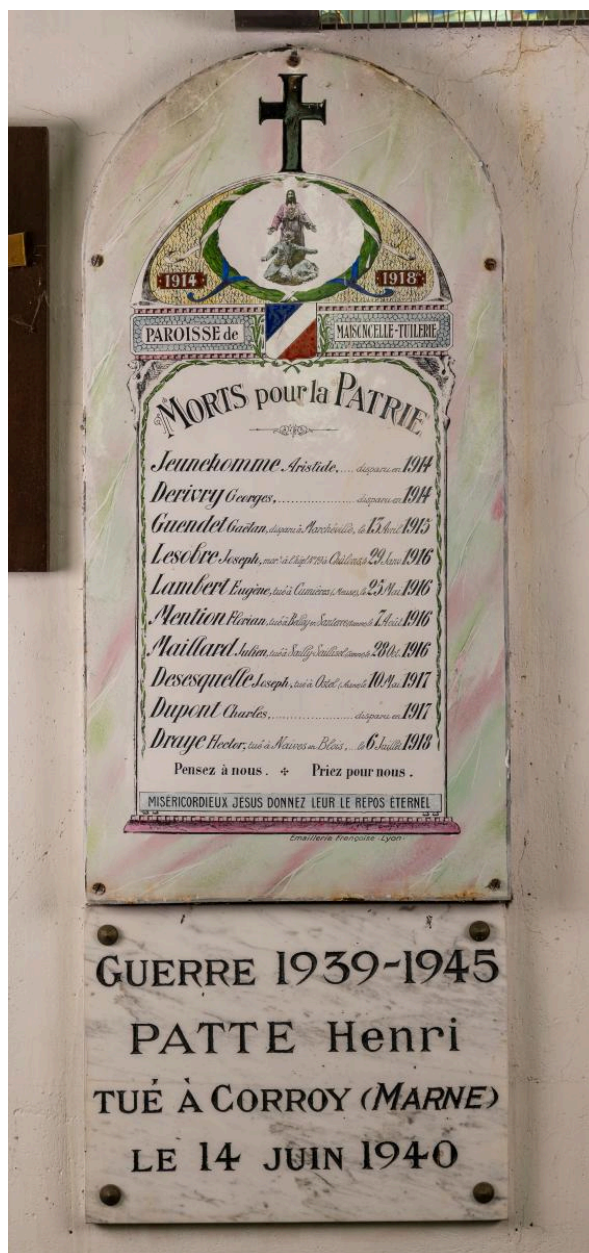 1914 1918
PAROISSE de MAISONCELLE-TUILERIE
MORTS pour la PATRIE
Jeunehomme Aristide, .... disparu en 1914
Derivry Georges, .................... disparu en 1914
Guendet Gaëtan, disparu à Marchéville, le 13 Avril 1915
Lesobre Joseph, à Châlons, 29 Janv 1916
Lambert Eugène, tué à Cumières (Meuse), le 25 Mai 1916
Mention Florian, tué à Belloy en Santerre le 7 Août 1916
Maillard Julien, tué à Sailly-Saillisel le 28 Oct. 1916
Desesquelle Joseph, tué à Ostel (Aisne) le 10 Mai 1917
Dupont Charles, .................... disparu en 1917
Draye Hector, tué à Naives en Blois, .. le 6 Juillet 1918
Pensez à nous . ✢ Priez pour nous .
MISÉRICORDIEUX JÉSUS DONNEZ LEUR LE REPOS ÉTERNEL
Emaillerie Française - Lyon
GUERRE 1939-1945
PATTE Henri
TUÉ À CORROY (MARNE)
LE 14 JUIN 1940